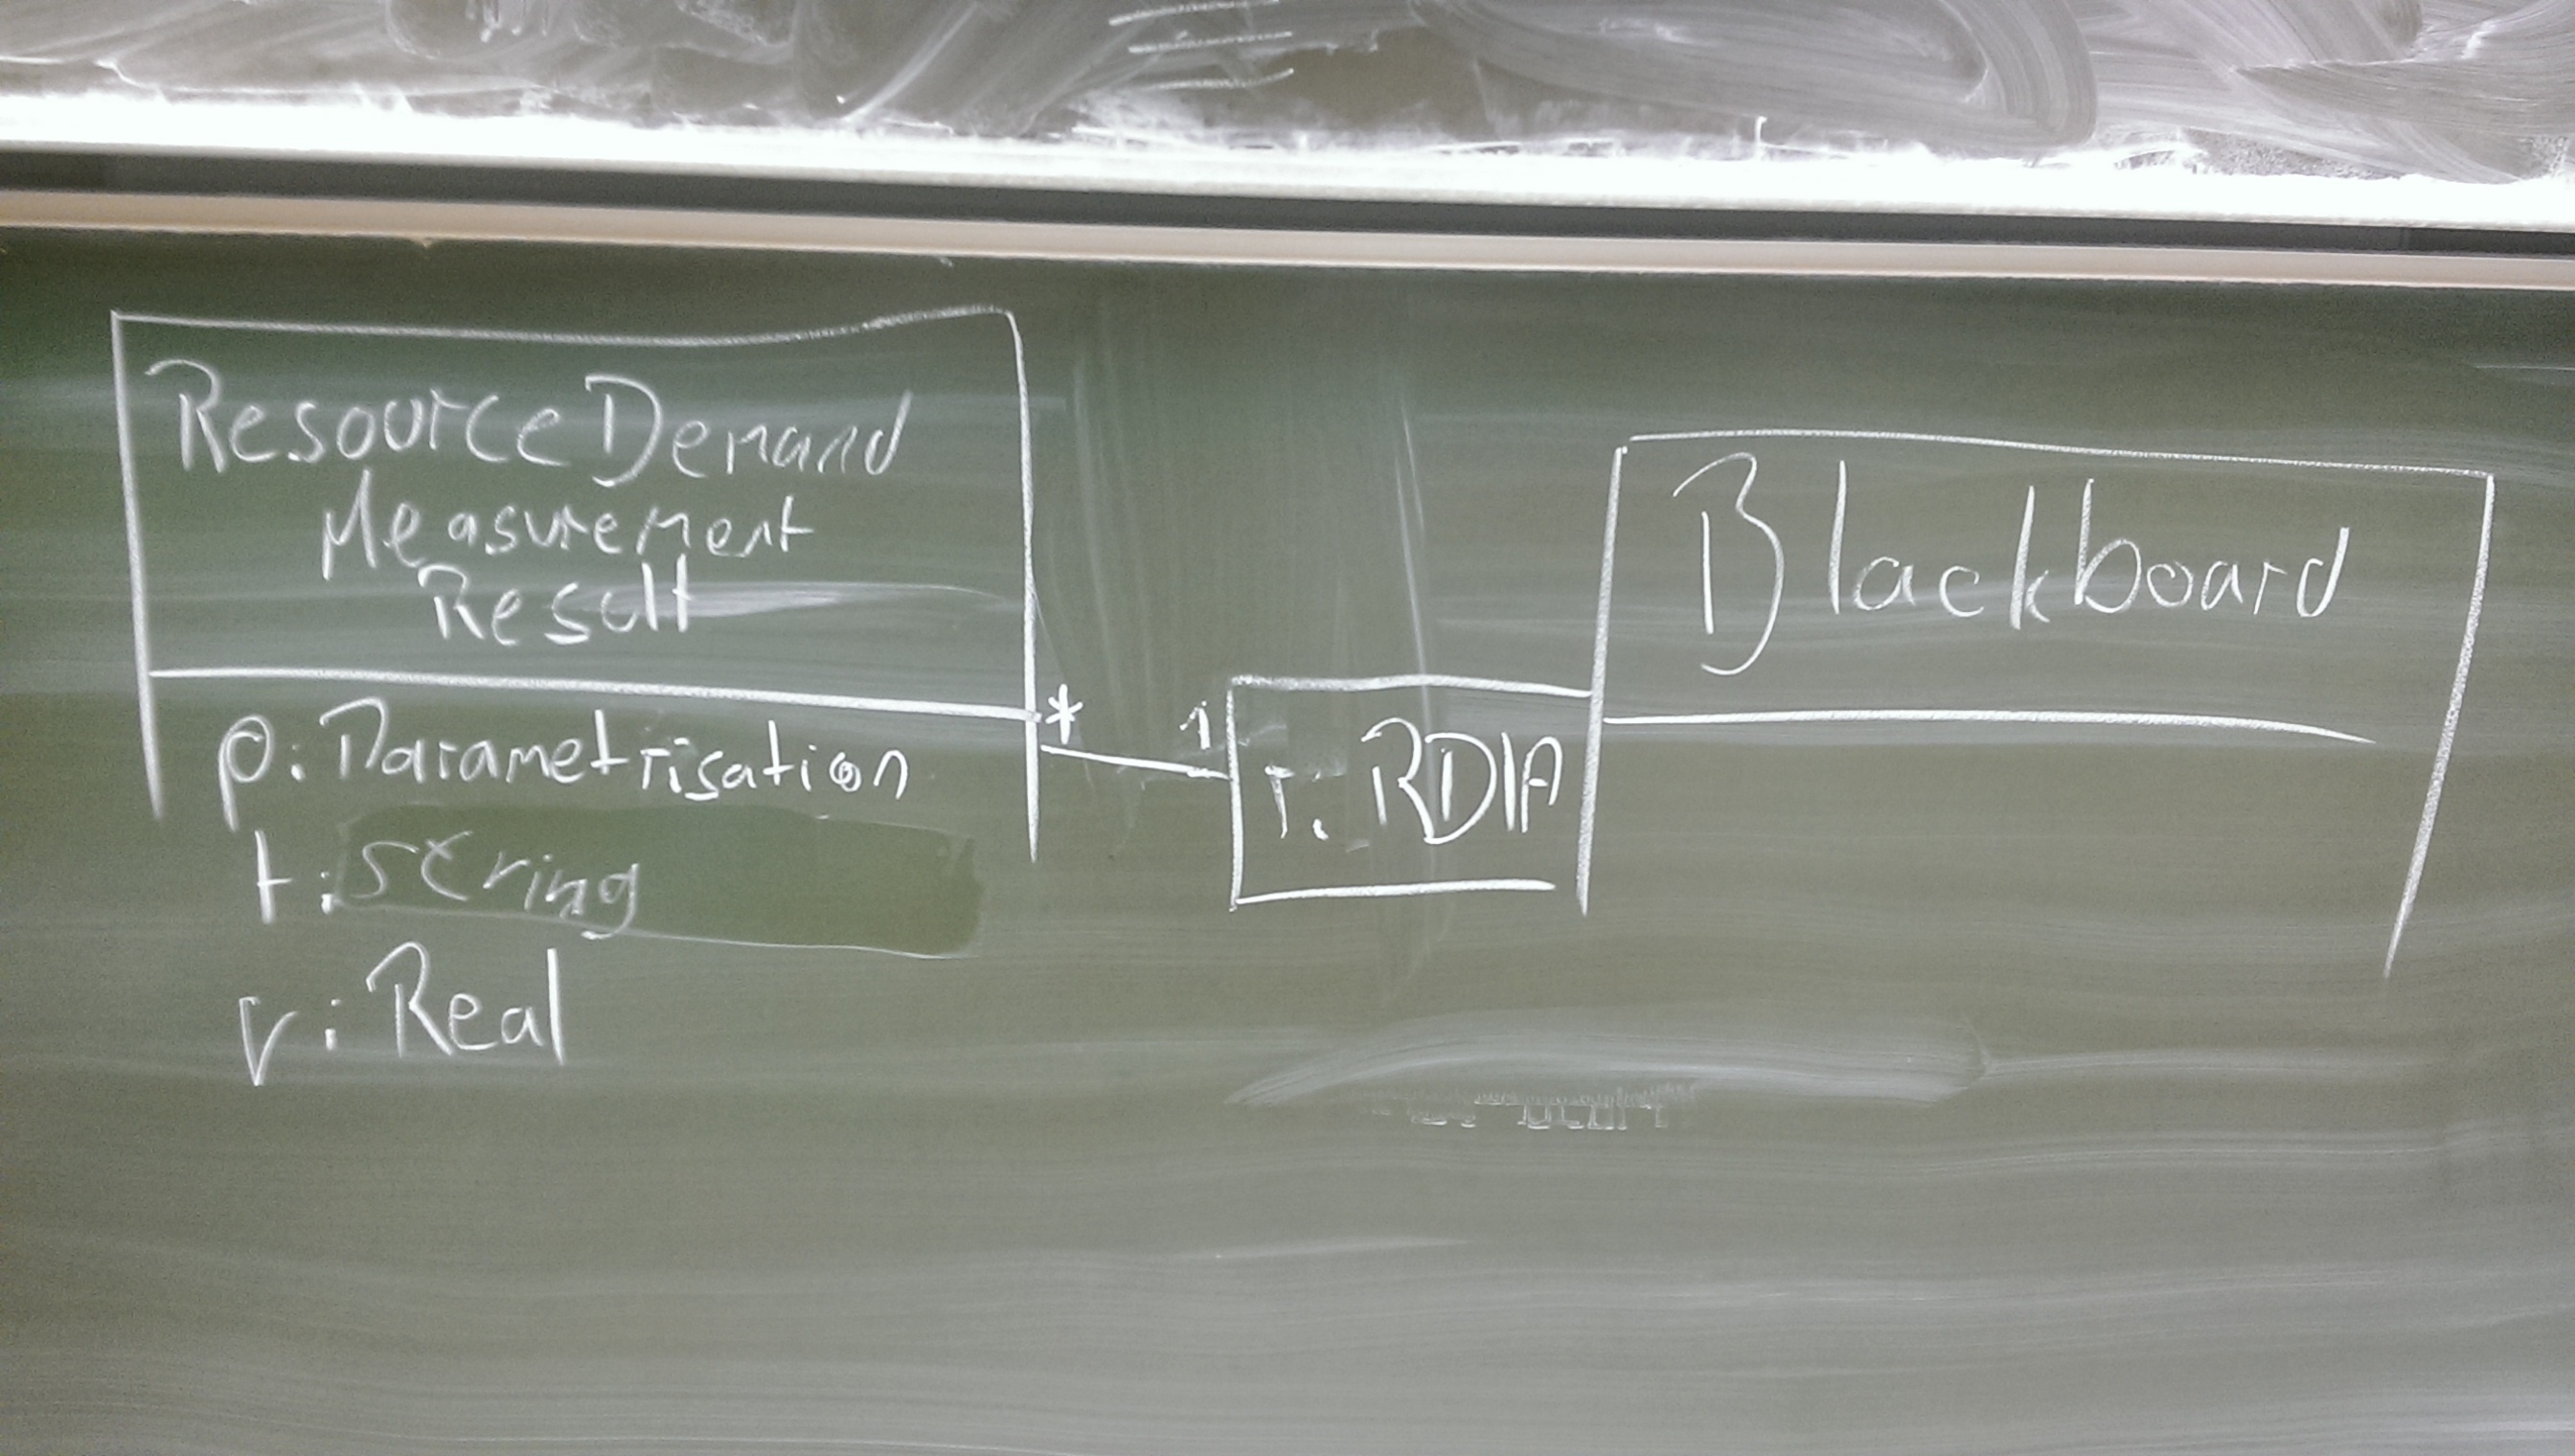 ResourceDemand
Measurement
Result
p: Parametrisation
t: string
v: Real
*
1
r: RDIA
Blackboard